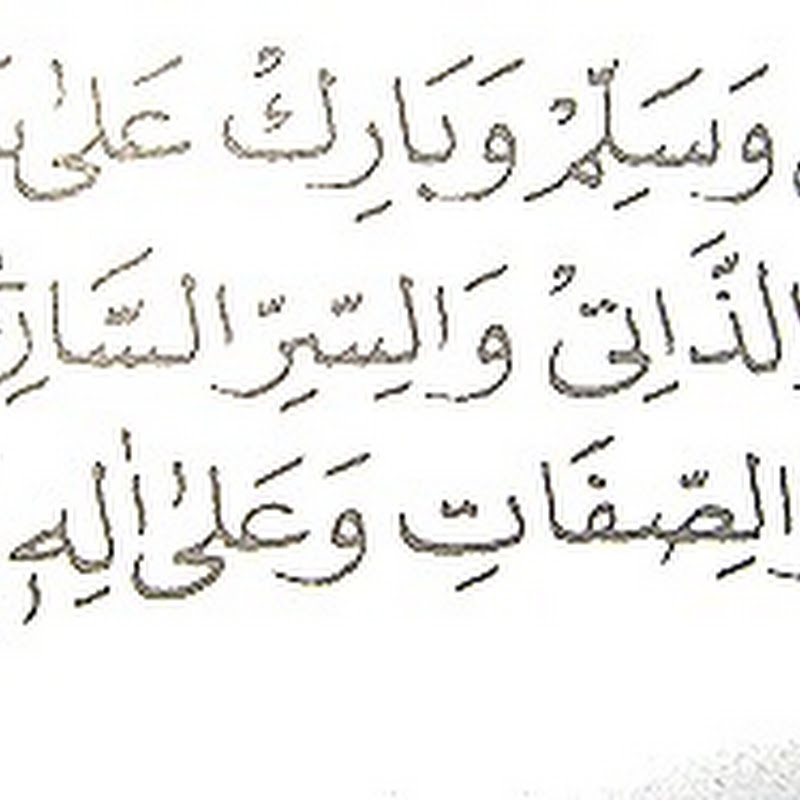 وَسَلِّمْ وَبَارِكْ عَلٰى
الذَّاتِىّْ وَالسِّرِّ السَّارِ
الصِّفَاتِ وَعَلٰى اٰلِهٖ